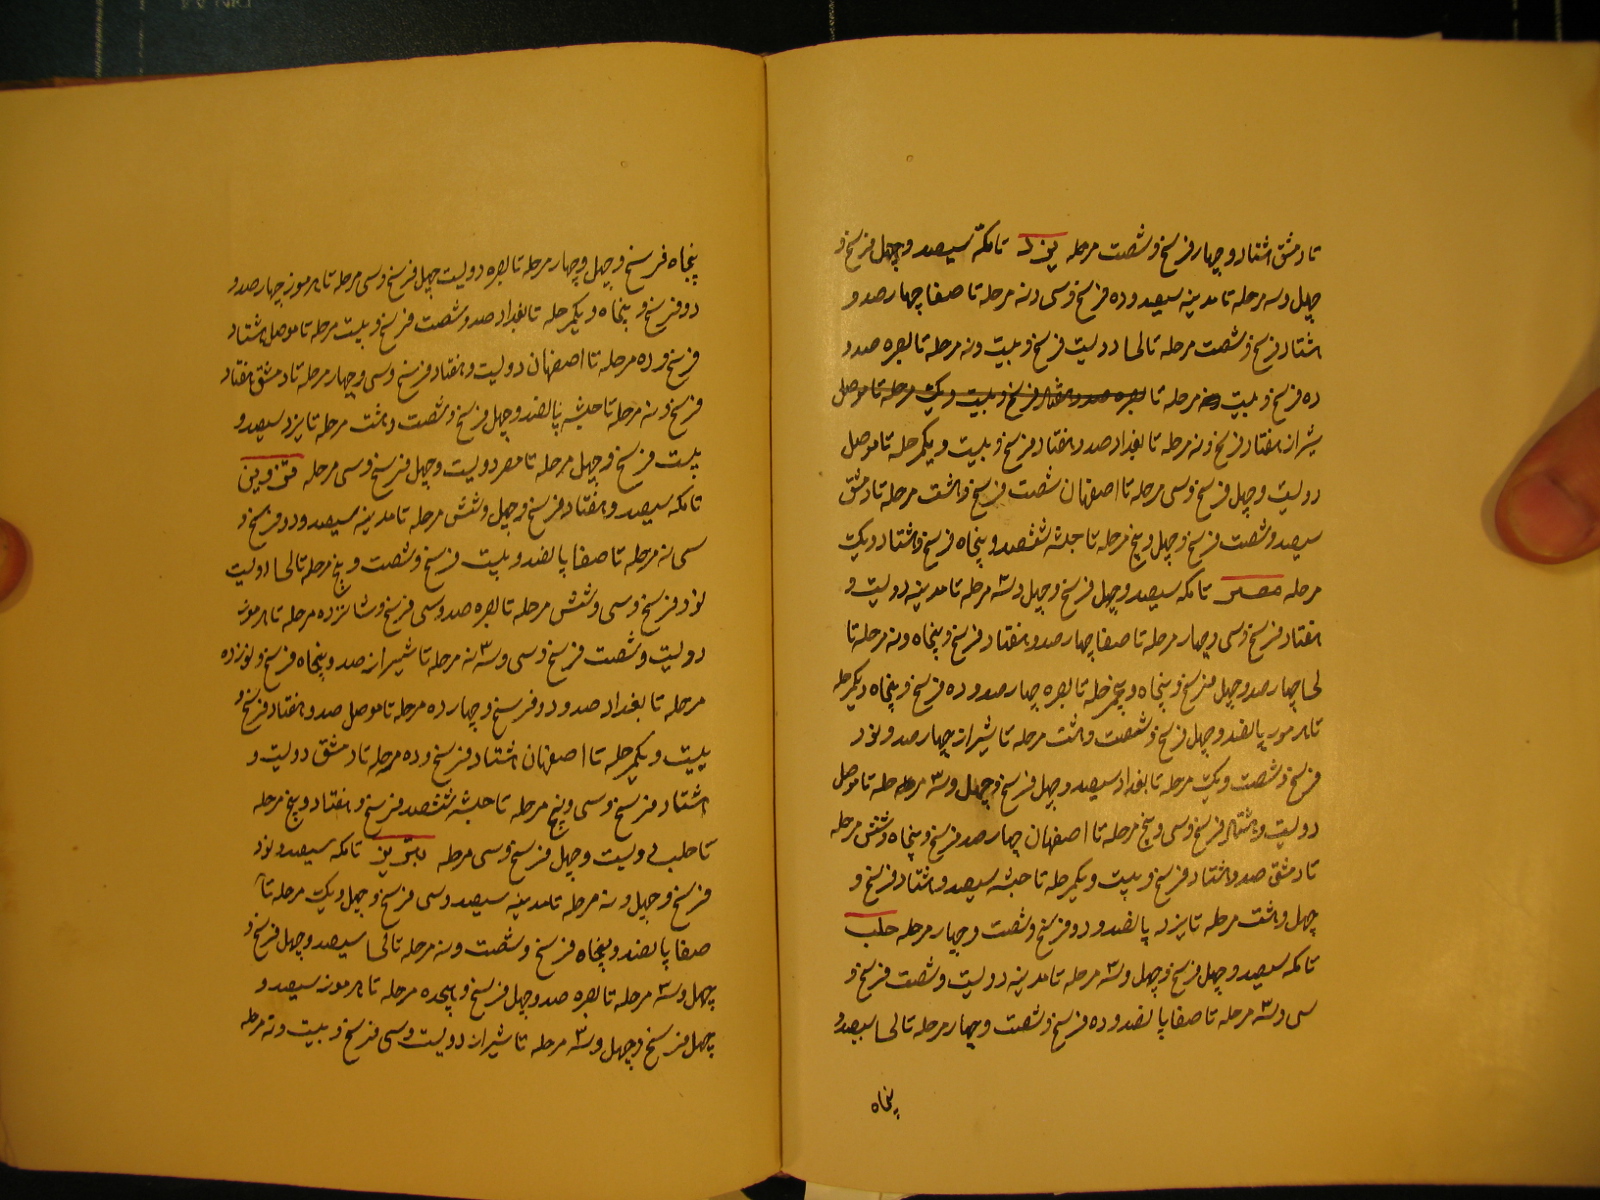 تا دمشق هشتاد و چهار فرسخ و شصت مرحله یزد تا مکه سیصد و چهل فرسخ و
چهل و سه مرحله تا مدینه سیصد و ده فرسخ و سی و نه مرحله تا صفا چهار صد و
هشتاد فرسخ و شصت مرحله تا لحا دویست فرسخ و بیست و نه مرحله تا بصره صد و
ده فرسخ و بیست مرحله تا بصره صد و هفتاد فرسخ و بیست و یک مرحله تا موصل
شیراز هفتاد فرسخ و نه مرحله تا بغداد صد و هفتاد فرسخ و بیست و یکمرحله تا موصل
دویست و چهل فرسخ و سی مرحله تا اصفهان شصت فرسخ و هشت مرحله تا دمشق
سیصد و شصت فرسخ و چهل و پنج مرحله تا حبشه ششصد و پنجاه فرسخ و هشتاد و یک
مرحله مصر تا مکه سیصد و چهل فرسخ و چهل و سه مرحله تا مدینه دویست و
هفتاد فرسخ و سی و چهار مرحله تا صفا چهار صد و هفتاد فرسخ و پنجاه و نه مرحله تا
لحا چهار صد و چهل فرسخ و پنجاه و پنجمرحله تا بصره چهار صد و ده فرسخ و پنجاه و یکمرحله
تا هرموز پالضد و چهل فرسخ و شصت و هشت مرحله تا شیراز چهار صد و نود
فرسخ و شصت و یک مرحله تا بغداد سیصد و چهل فرسخ و چهل و سه مرحله تا موصل
دویست و هشتاد فرسخ و سی و پنج مرحله تا اصفهان چهار صد فرسخ و پنجاه و شش مرحله
تا دمشق صد و هشتاد فرسخ و بیست و یکمرحله تا حبشه سیصد و هشتاد فرسخ و
چهل و هشت مرحله تا یزد پالضد و دو فرسخ و شصت و چهار مرحله حلب
تا مکه سیصد و چهل فرسخ و چهل و سه مرحله تا مدینه دویست و شصت فرسخ و
سی و سه مرحله تا صفا پالضد و ده فرسخ و شصت و چهار مرحله تا لحا سیصد و
پنجاه
پنجاه فرسخ و چهل و چهار مرحله تا بصره دویست چهل فرسخ و سی مرحله تا هرموز چهار صد و
دو فرسخ و پنجاه و یکمرحله تا بغداد صد و شصت فرسخ و بیست مرحله تا موصل هشتاد
فرسخ و ده مرحله تا اصفهان دویست و هفتاد فرسخ و سی و چهار مرحله تا دمشق هفتاد
فرسخ و نه مرحله تا حبشه پالضد و چهل فرسخ و شصت و هشت مرحله تا یزد سیصد و
بیست فرسخ و چهل مرحله تا مصر دویست و چهل فرسخ و سی مرحله قزوین
تا مکه سیصد و هفتاد فرسخ و چهل و شش مرحله تا مدینه سیصد و دو فرسخ و
سی نه مرحله تا صفا پالضد و بیست فرسخ و شصت و پنج مرحله تا لحا دویست
نود فرسخ و سی و شش مرحله تا بصره صد و سی فرسخ و شانزده مرحله تا هرموز
دویست و شصت فرسخ و سی و سه نه مرحله تا شیراز صد و پنجاه فرسخ و نوزده
مرحله تا بغداد صد و دو فرسخ و چهار ده مرحله تا موصل صد و هفتاد فرسخ و
بیست و یکمرحله تا اصفهان هشتاد فرسخ و ده مرحله تا دمشق دویست و
هشتاد فرسخ و سی و پنج مرحله تا حبشه ششصد فرسخ و هفتاد و پنج مرحله
تا حلب دویست و چهل فرسخ و سی مرحله تبریز تا مکه سیصد و نود
فرسخ و چهل و نه مرحله تا مدینه سیصد و سی فرسخ و چهل و یک مرحله تا
صفا پالضد و پنجاه فرسخ و شصت و نه مرحله تا لحا سیصد و چهل فرسخ و
چهل و سه مرحله تا بصره صد و چهل فرسخ و هیجده مرحله تا هرموز سیصد و
چهل فرسخ و چهل و سه مرحله تا شیراز دویست و سی فرسخ و بیست و نه مرحله